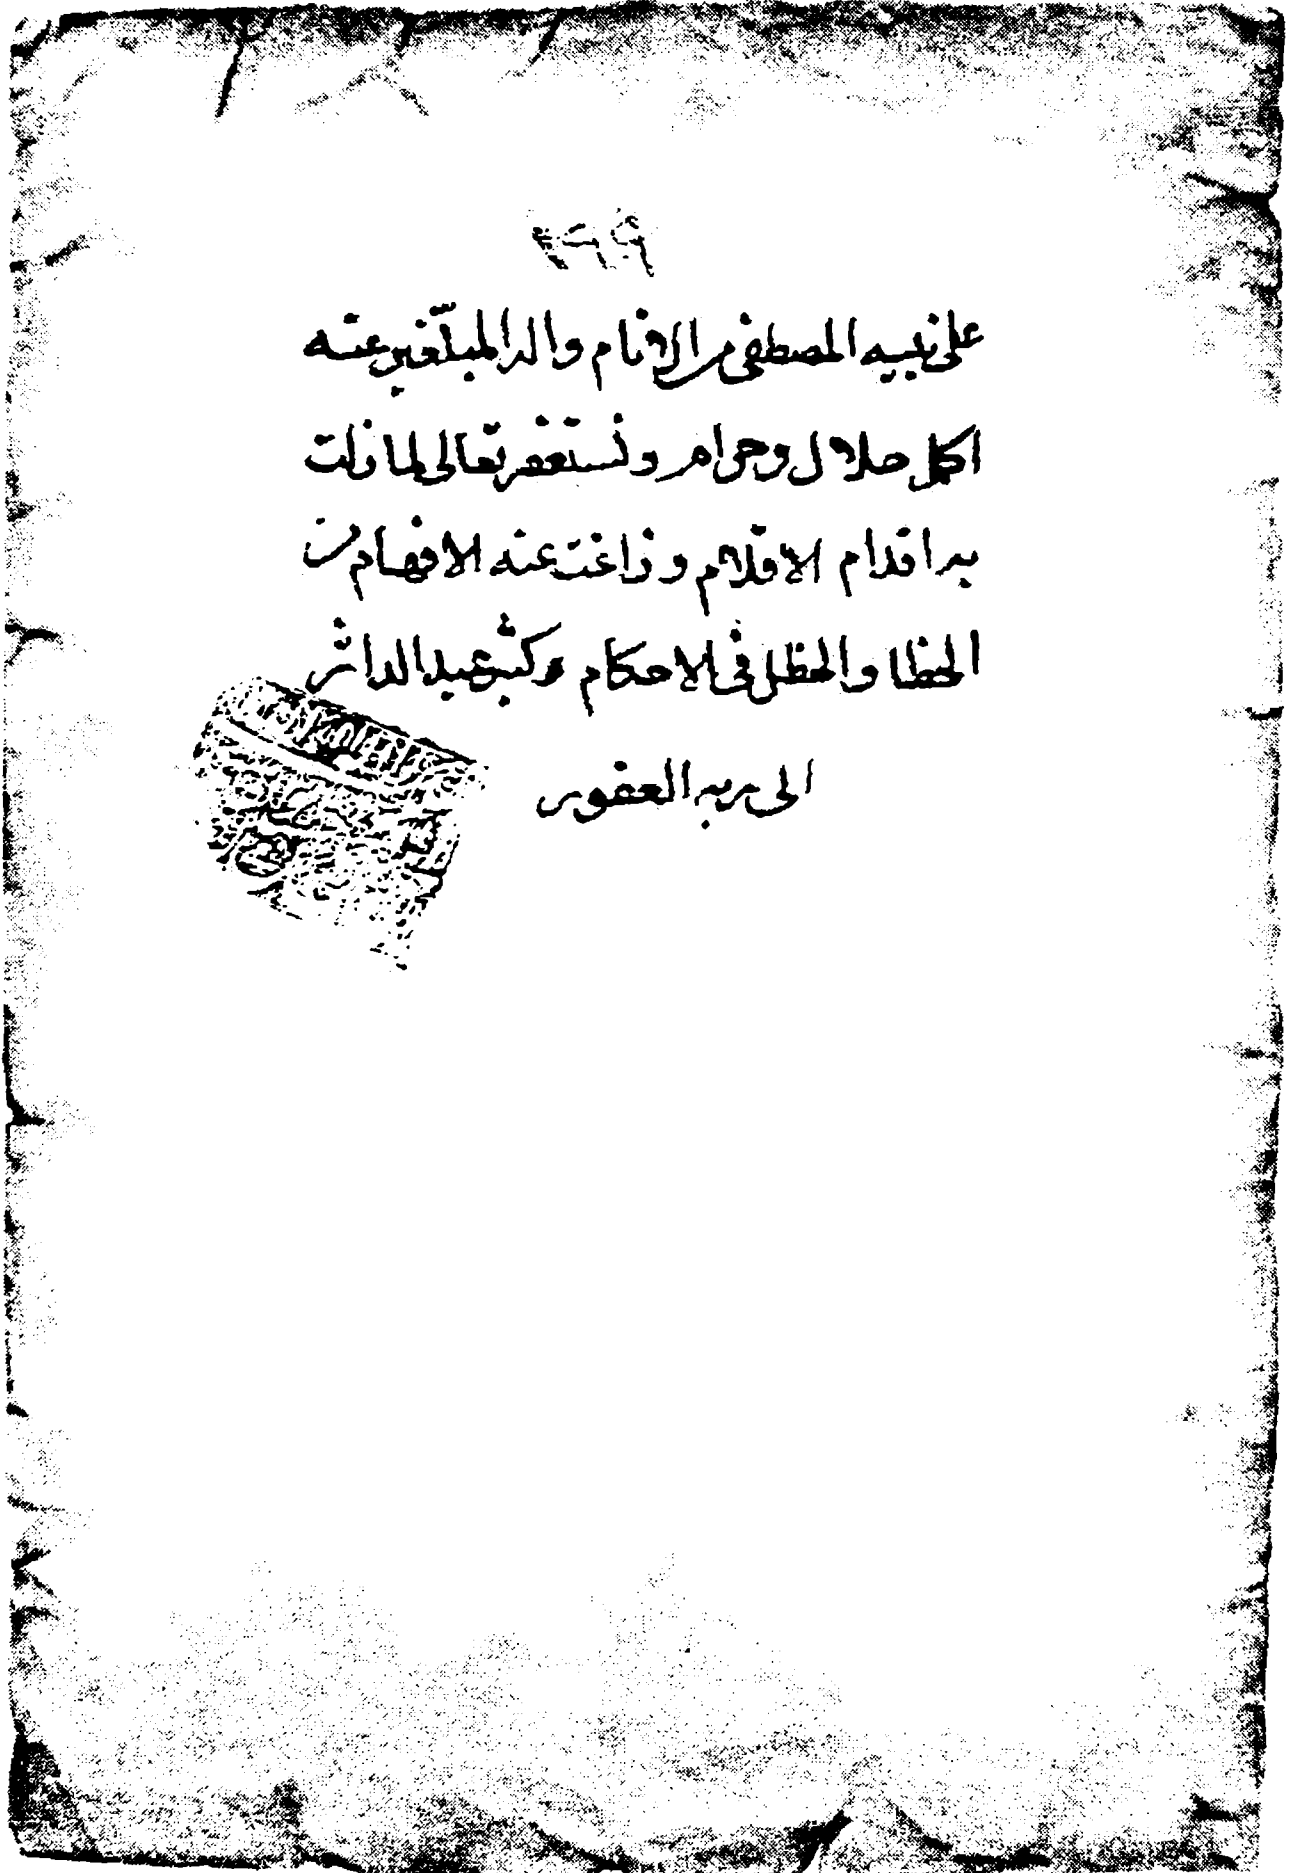 على نبيه المصطفى من الانام واله المبلغين عنه
اكمل حلال وحرام ونستغفره تعالى لما زلت
به اقدام الاقلام وزاغت عنه الافهام من
الخطا والخطل فى الاحكام وكتب عبد الداثر
الى ربه الغفور